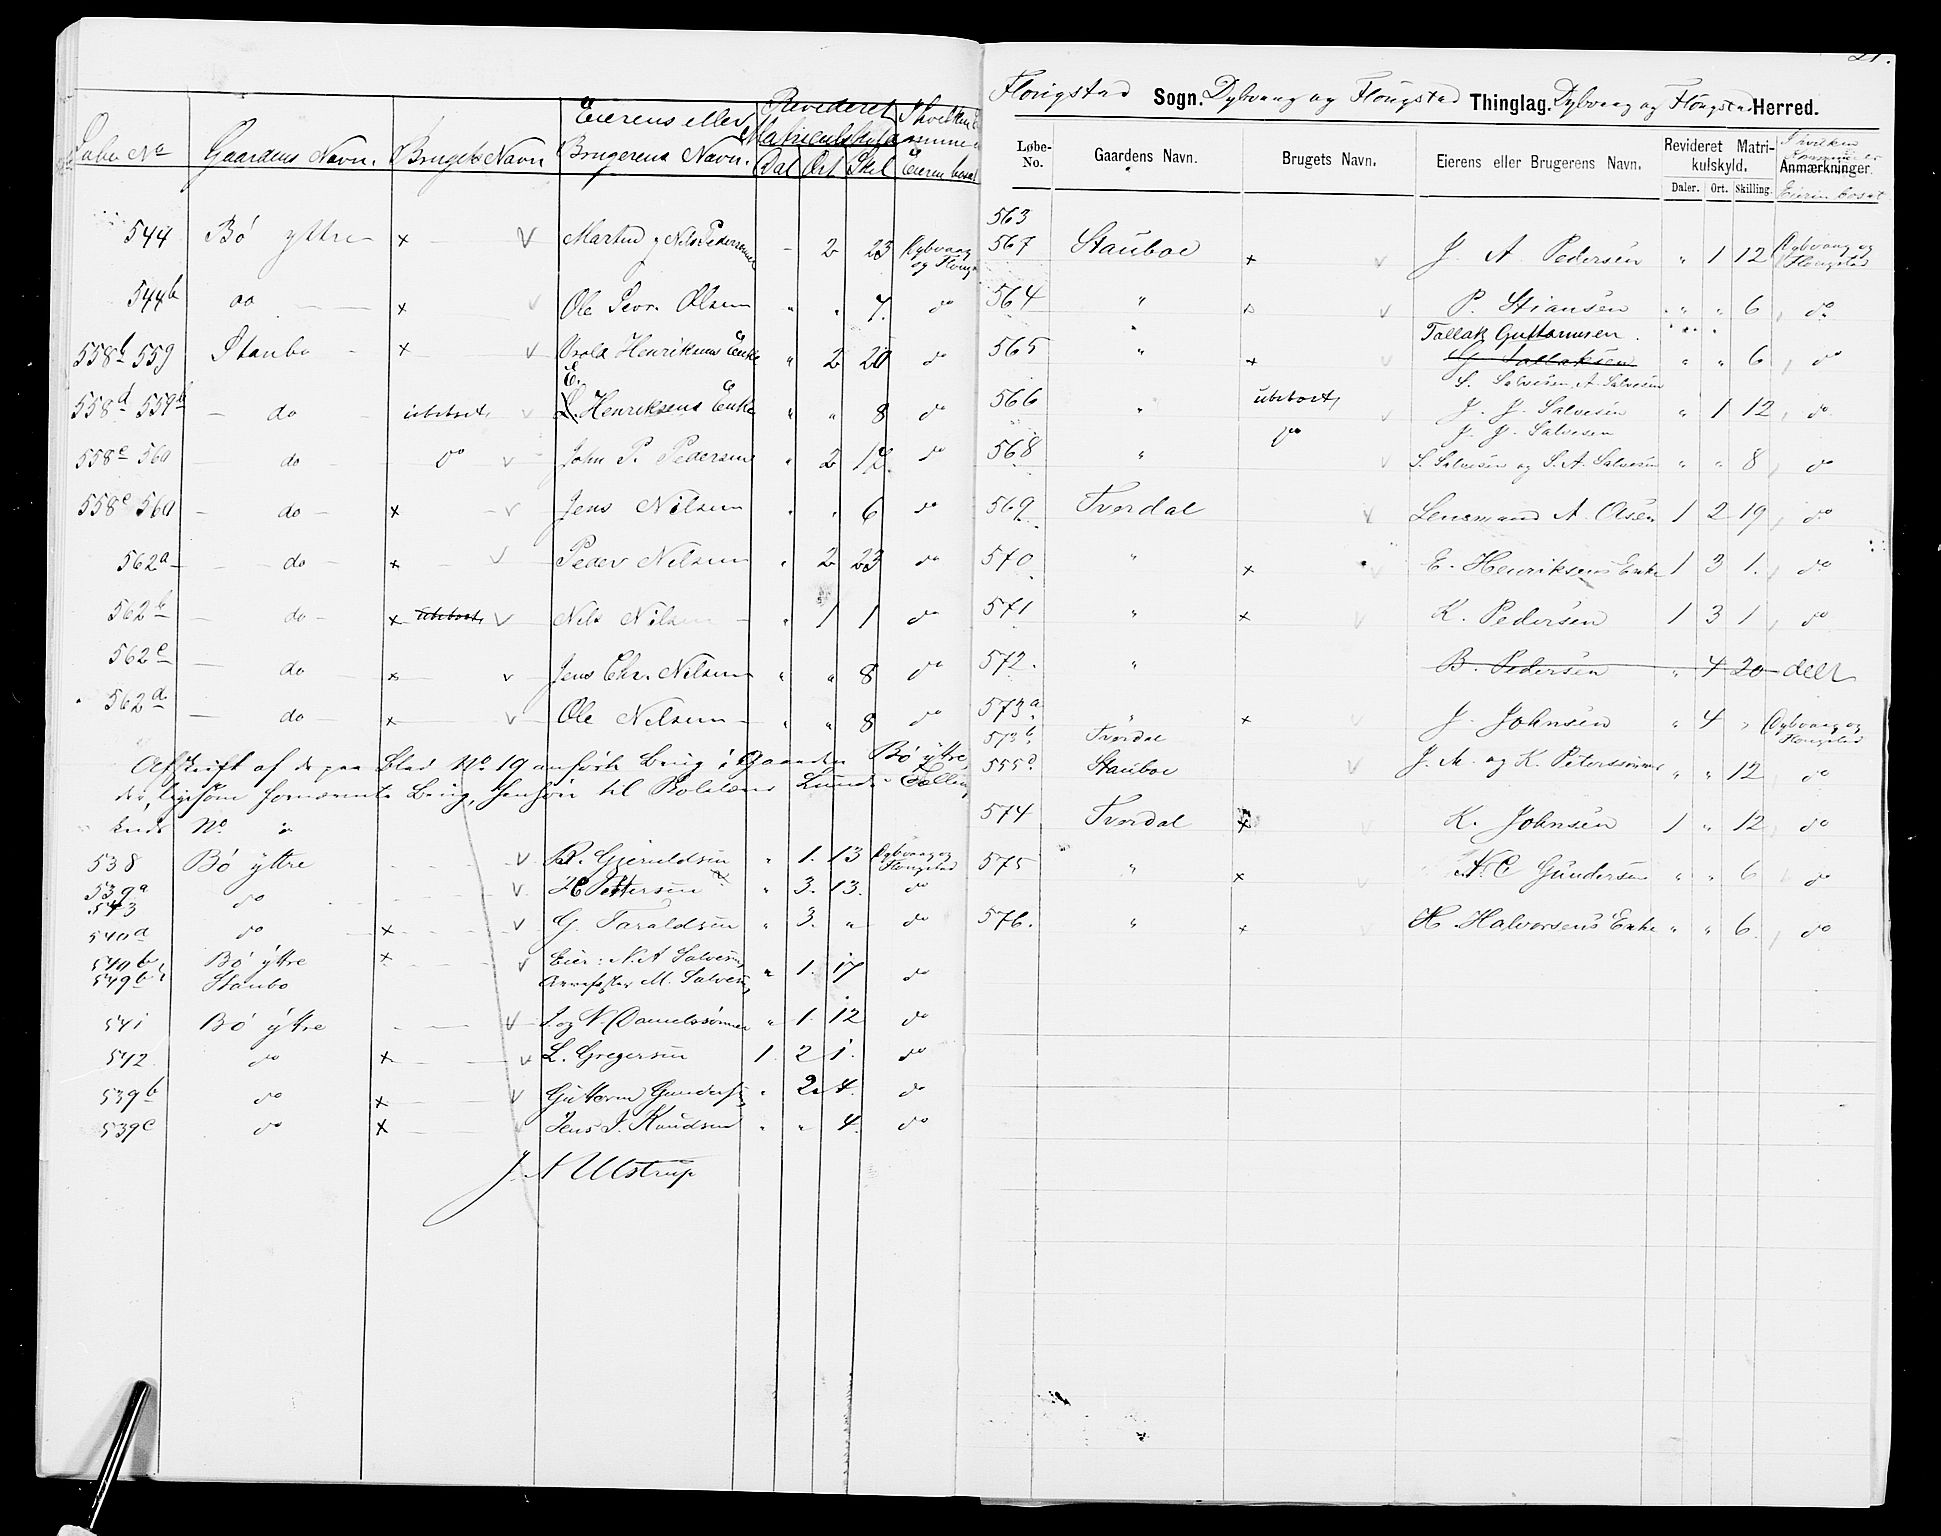 Løbe No Gaardens Navn. Brugets Navn Eierens eller Brugerens Navn. Revideret Matriculskyld Dal Ort Skil I hvilken Eieren bosat
544 Bö yttre x V Nils Pedersen - 2 23 Dybvaag og Flougstad
544b do x V Ole Olsen " " 7. do
558b 559 Staubo x V Henriksens Enke " 2 20 do
558d 559b do ubeboet, V E. Henriksens Enke " " 8 do
558c 560 do Do V John P. Pedersen " 2 12. do
558e 560 do x V Jens Nilsen " " 6 do
562a do x V Peder Nilsen " 2 23 do
562b do x ubeboet, V Nils Nilsen " 1 1 do
562c do x V Jens Chr. Nilsen " " 8 do
562d do x V Ole Nilsen " " 8 do
Afskrift af de paa Blad No 19 anförte Brug i Gaarden Bö yttre,
der, ligesom fornævnte Brug, henhörer til Roldens Lunde Tællings
kreds No
538 Bö yttre V R. Gjeruldsen " 1. 13 Dybvaag og Flougstad
539a 543 do V H Pettersen " 3. 13. do
540a do x V G. Taraldsen " 3. " do
540b, 549b Bö yttre Staubo x V Eier: N. A Salvesen, M. Salvesen, " 1. 17 do
541 Bö yttre V J. og N. Danielssönner " 1. 12 do
542 do x V L. Gregersen 1. 2 1. do
539b do x V Guttorm Gundersen " 2 4. do
539c do x V Jens J. Knudsen " " 4. do
J. N Ulstrup
21.
Flougstad Sogn. Dybvaag og Flougstad Thinglag. Dybvaag og Flougstad Herred.
Løbe-No. Gaardens Navn. Brugets Navn. Eierens eller Brugerens Navn. Revideret Matrikulskyld. Daler. Ort. Skilling. Anmærkninger. I hvilken Kommune Eieren bosat
563
567 Stauboe x V J. A. Pedersen " 1 12 Dybvaag og Flougstad
564 " x V P. Stiansen " " 6 do
Tallak Guttormsen.
565 " x V G. Tallaksen " " 6 do
S. Salvesen, A. Salvesen
566 " ubeboet, V J. J. Salvesen " 1 12 do
J. J. Salvesen
568 " Do V S. Salvesen og S. A. Salvesen " " 8 do
569 Tverdal V Lensmand A. Olsen 1 2 19 do
570 " x V E. Henriksens Enke 1 3 1. do
571 " x V K. Pedersen 1 3 1 do
572. " B. Pedersen " 4 20 deelt
573a " x V J. Johnsen " 4 " Dybvaag og Flougstad
573b Tverdal
555d Stauboe V J. M. og K. Peterssönner " " 12 do
574 Tverdal x V K. Johnsen 1 " 12 do
575 " x V N. C Gundersen " " 6 do
576. " x V H. Halvorsens Enke " " 6. do